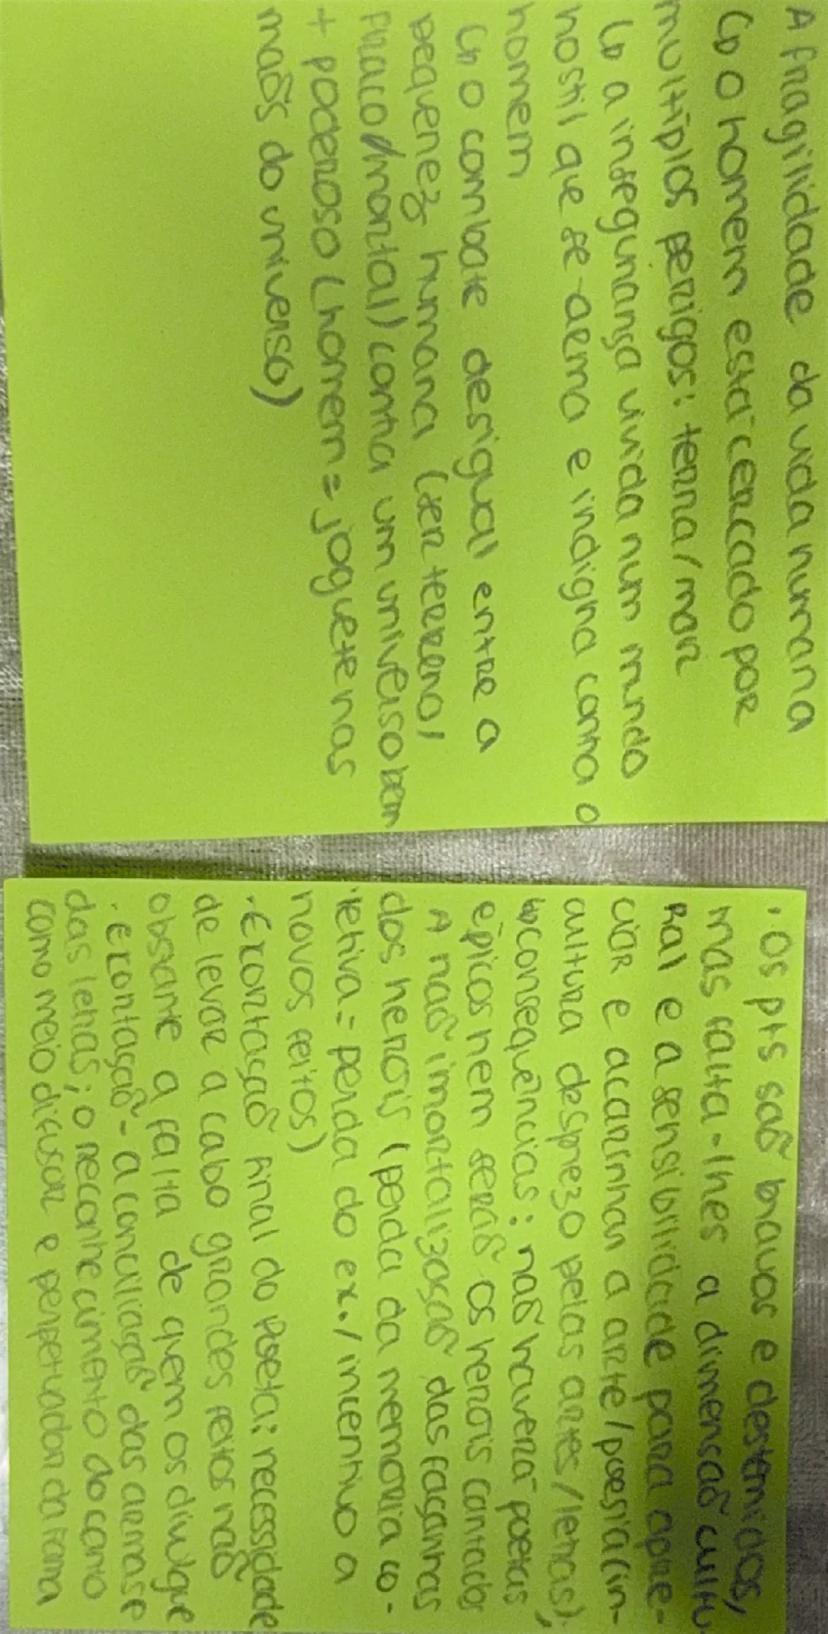 A fragilidade da vida humana
↳ o homem está cercado por
multiplos perigos: terra/mar
↳ a insegurança vivida num mundo
hostil que se arma e indigna contra o
homem
↳ o combate desigual entre a
pequenez humana (ser terreno/
fraco/mortal) contra um universo bem
+ poderoso (homem = joguete nas
mãos do universo)
• Os pts são bravos e destemidos,
mas falta-lhes a dimensão cultu
ral e a sensibilidade para apre-
ciar e acarinhar a arte/poesia (in-
cultura desprezo pelas artes/letras),
↳ consequências: não haverá poetas
épicos nem serão os heróis cantados
A não imortalização das façanhas
dos heróis (perda da memória co-
letiva = perda do ex./incentivo a
novos feitos)
• Exortação final do Poeta: necessidade
de levar a cabo grandes feitos não
obstante a falta de quem os divulgue
• Exortação - a conciliação das armas e
das letras; o reconhecimento do canto
como meio difusor e perpetuador da fama